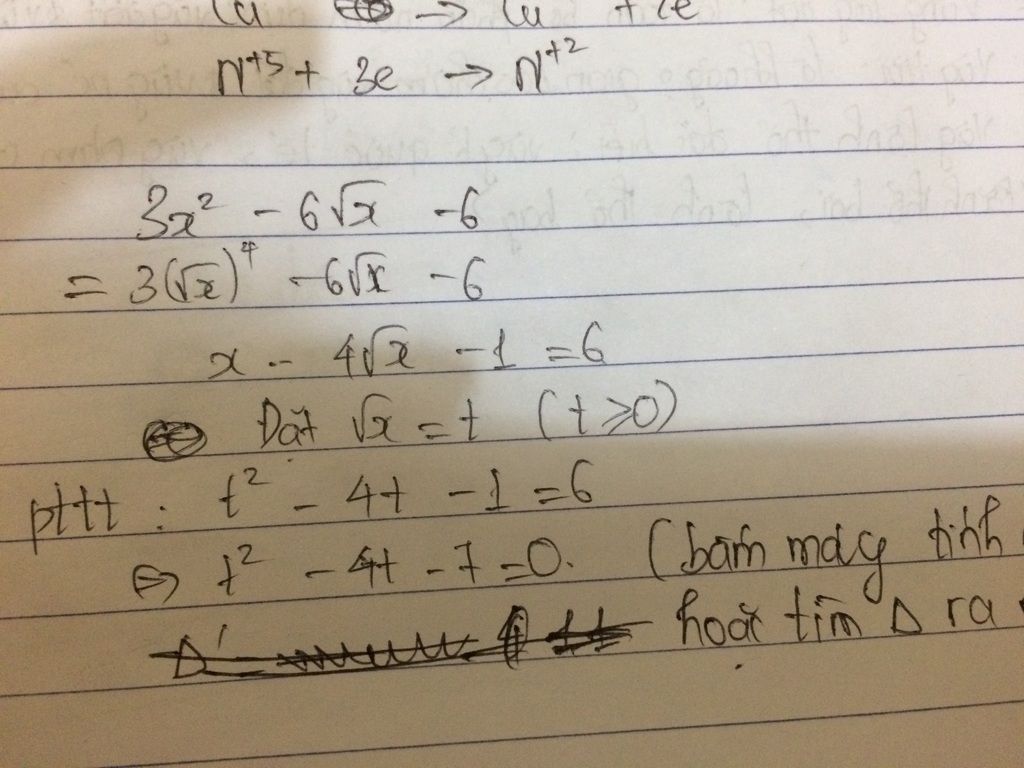 Cu → Cu + 2e
N⁺⁵ + 3e → N⁺²
3x² - 6√x - 6
= 3(√x)⁴ - 6√x - 6
x - 4√x - 1 = 6
Đặt √x = t (t ≥ 0)
pttt : t² - 4t - 1 = 6
⇔ t² - 4t - 7 = 0. (bấm máy tính
hoặc tìm Δ ra